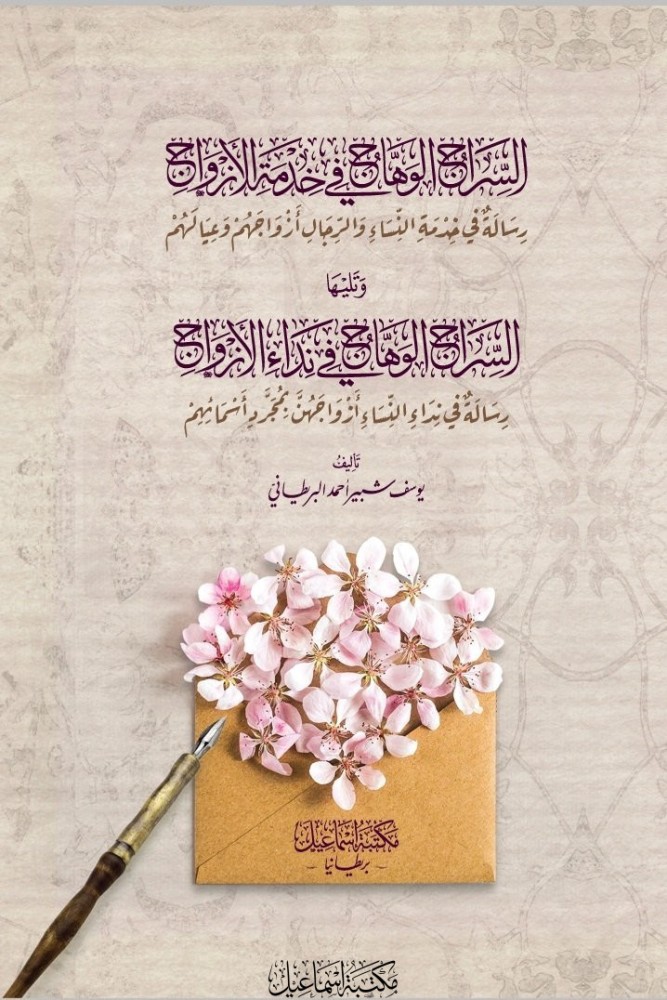 السِّرَاجُ الوَهَّاجُ فِي خِدْمَةِ الأَزْوَاجِ
رِسَالَةٌ فِي خِدْمَةِ النِّسَاءِ وَالرِّجَالِ أَزْوَاجَهُمْ وَعِيَالَهُمْ
وَتَلِيْهَا
السِّرَاجُ الوَهَّاجُ فِي نِدَاءِ الأَزْوَاجِ
رِسَالَةٌ فِي نِدَاءِ النِّسَاءِ أَزْوَاجَهُنَّ بِمُجَرَّدِ أَسْمَائِهِمْ
تَأْلِيفُ
يوسف شبير أحمد البريطاني
مَكْتَبَةُ إِسْمَاعِيْلَ
بريطانيا
مَكْتَبَةُ إِسْمَاعِيْلَ